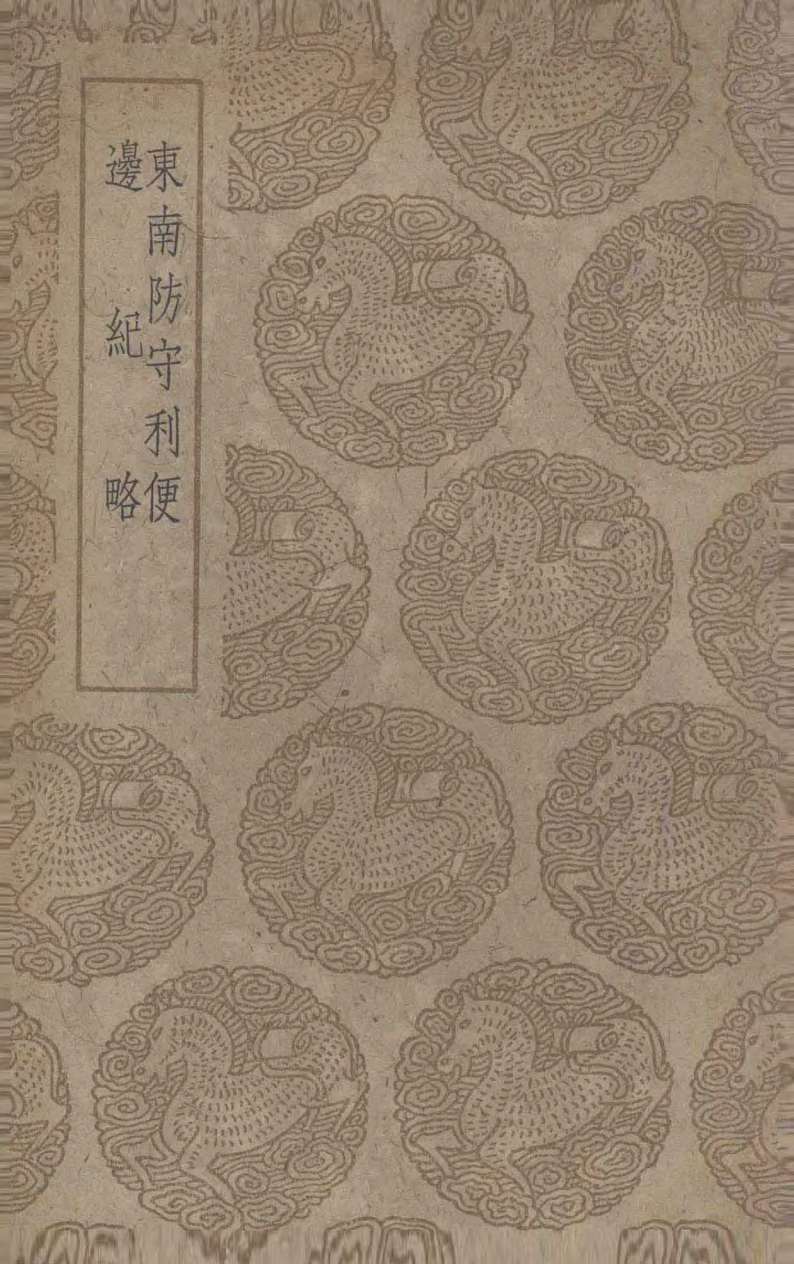 東南防守利便
邊紀略